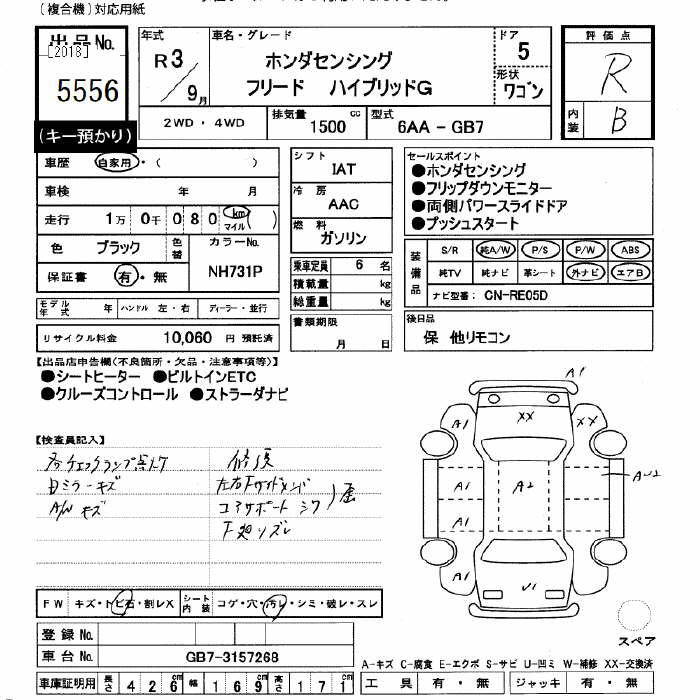 (複合機)対応用紙
出品No.
[2018]
5556
(キー預かり)
年式
R3/9月
車名・グレード
ホンダセンシング
フリード ハイブリッドG
ドア
5
形状
ワゴン
評価点
R
内装
B
2WD・4WD
排気量
1500
cc
型式
6AA-GB7
車歴
自家用・( )
車検 年 月
走行 1万 0千 080 km マイル ( )
色 ブラック
色替
カラーNo.
NH731P
保証書 有・無
モデル年式 年
ハンドル 左・右
ディーラー・並行
リサイクル料金 10,060 円 預託済
シフト
IAT
冷房
AAC
燃料
ガソリン
乗車定員 6 名
積載量 kg
総重量 kg
書類期限
月 日
セールスポイント
●ホンダセンシング
●フリップダウンモニター
●両側パワースライドドア
●プッシュスタート
装備品
S/R 純A/W P/S P/W ABS
純TV 純ナビ 革シート 外ナビ エアB
ナビ型番: CN-RE05D
後日品
保 他リモコン
【出品店申告欄(不良箇所・欠品・注意事項等)】
●シートヒーター ●ビルトインETC
●クルーズコントロール ●ストラーダナビ
【検査員記入】
チェックランプ点灯
Dミラーキズ
A/W キズ
修復
左右Fサイドメンバ
コアサポート シワ
下廻リズレ
A1
XX
A1
XX
A1
A2
A1
A1
A1
V1
スペア
FW キズ・トビ石・割レX
シート内装
コゲ・穴・汚レ・シミ・破レ・スレ
登録No.
車台No. GB7-3157268
車庫証明用 長さ 426 幅 169 高さ 171
A-キズ C-腐食 E-エクボ S-サビ U-凹ミ W-補修 XX-交換済
工具 有・無 ジャッキ 有・無